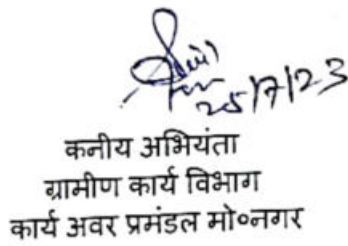 25/7/23
कनीय अभियंता
ग्रामीण कार्य विभाग
कार्य अवर प्रमंडल मो०नगर